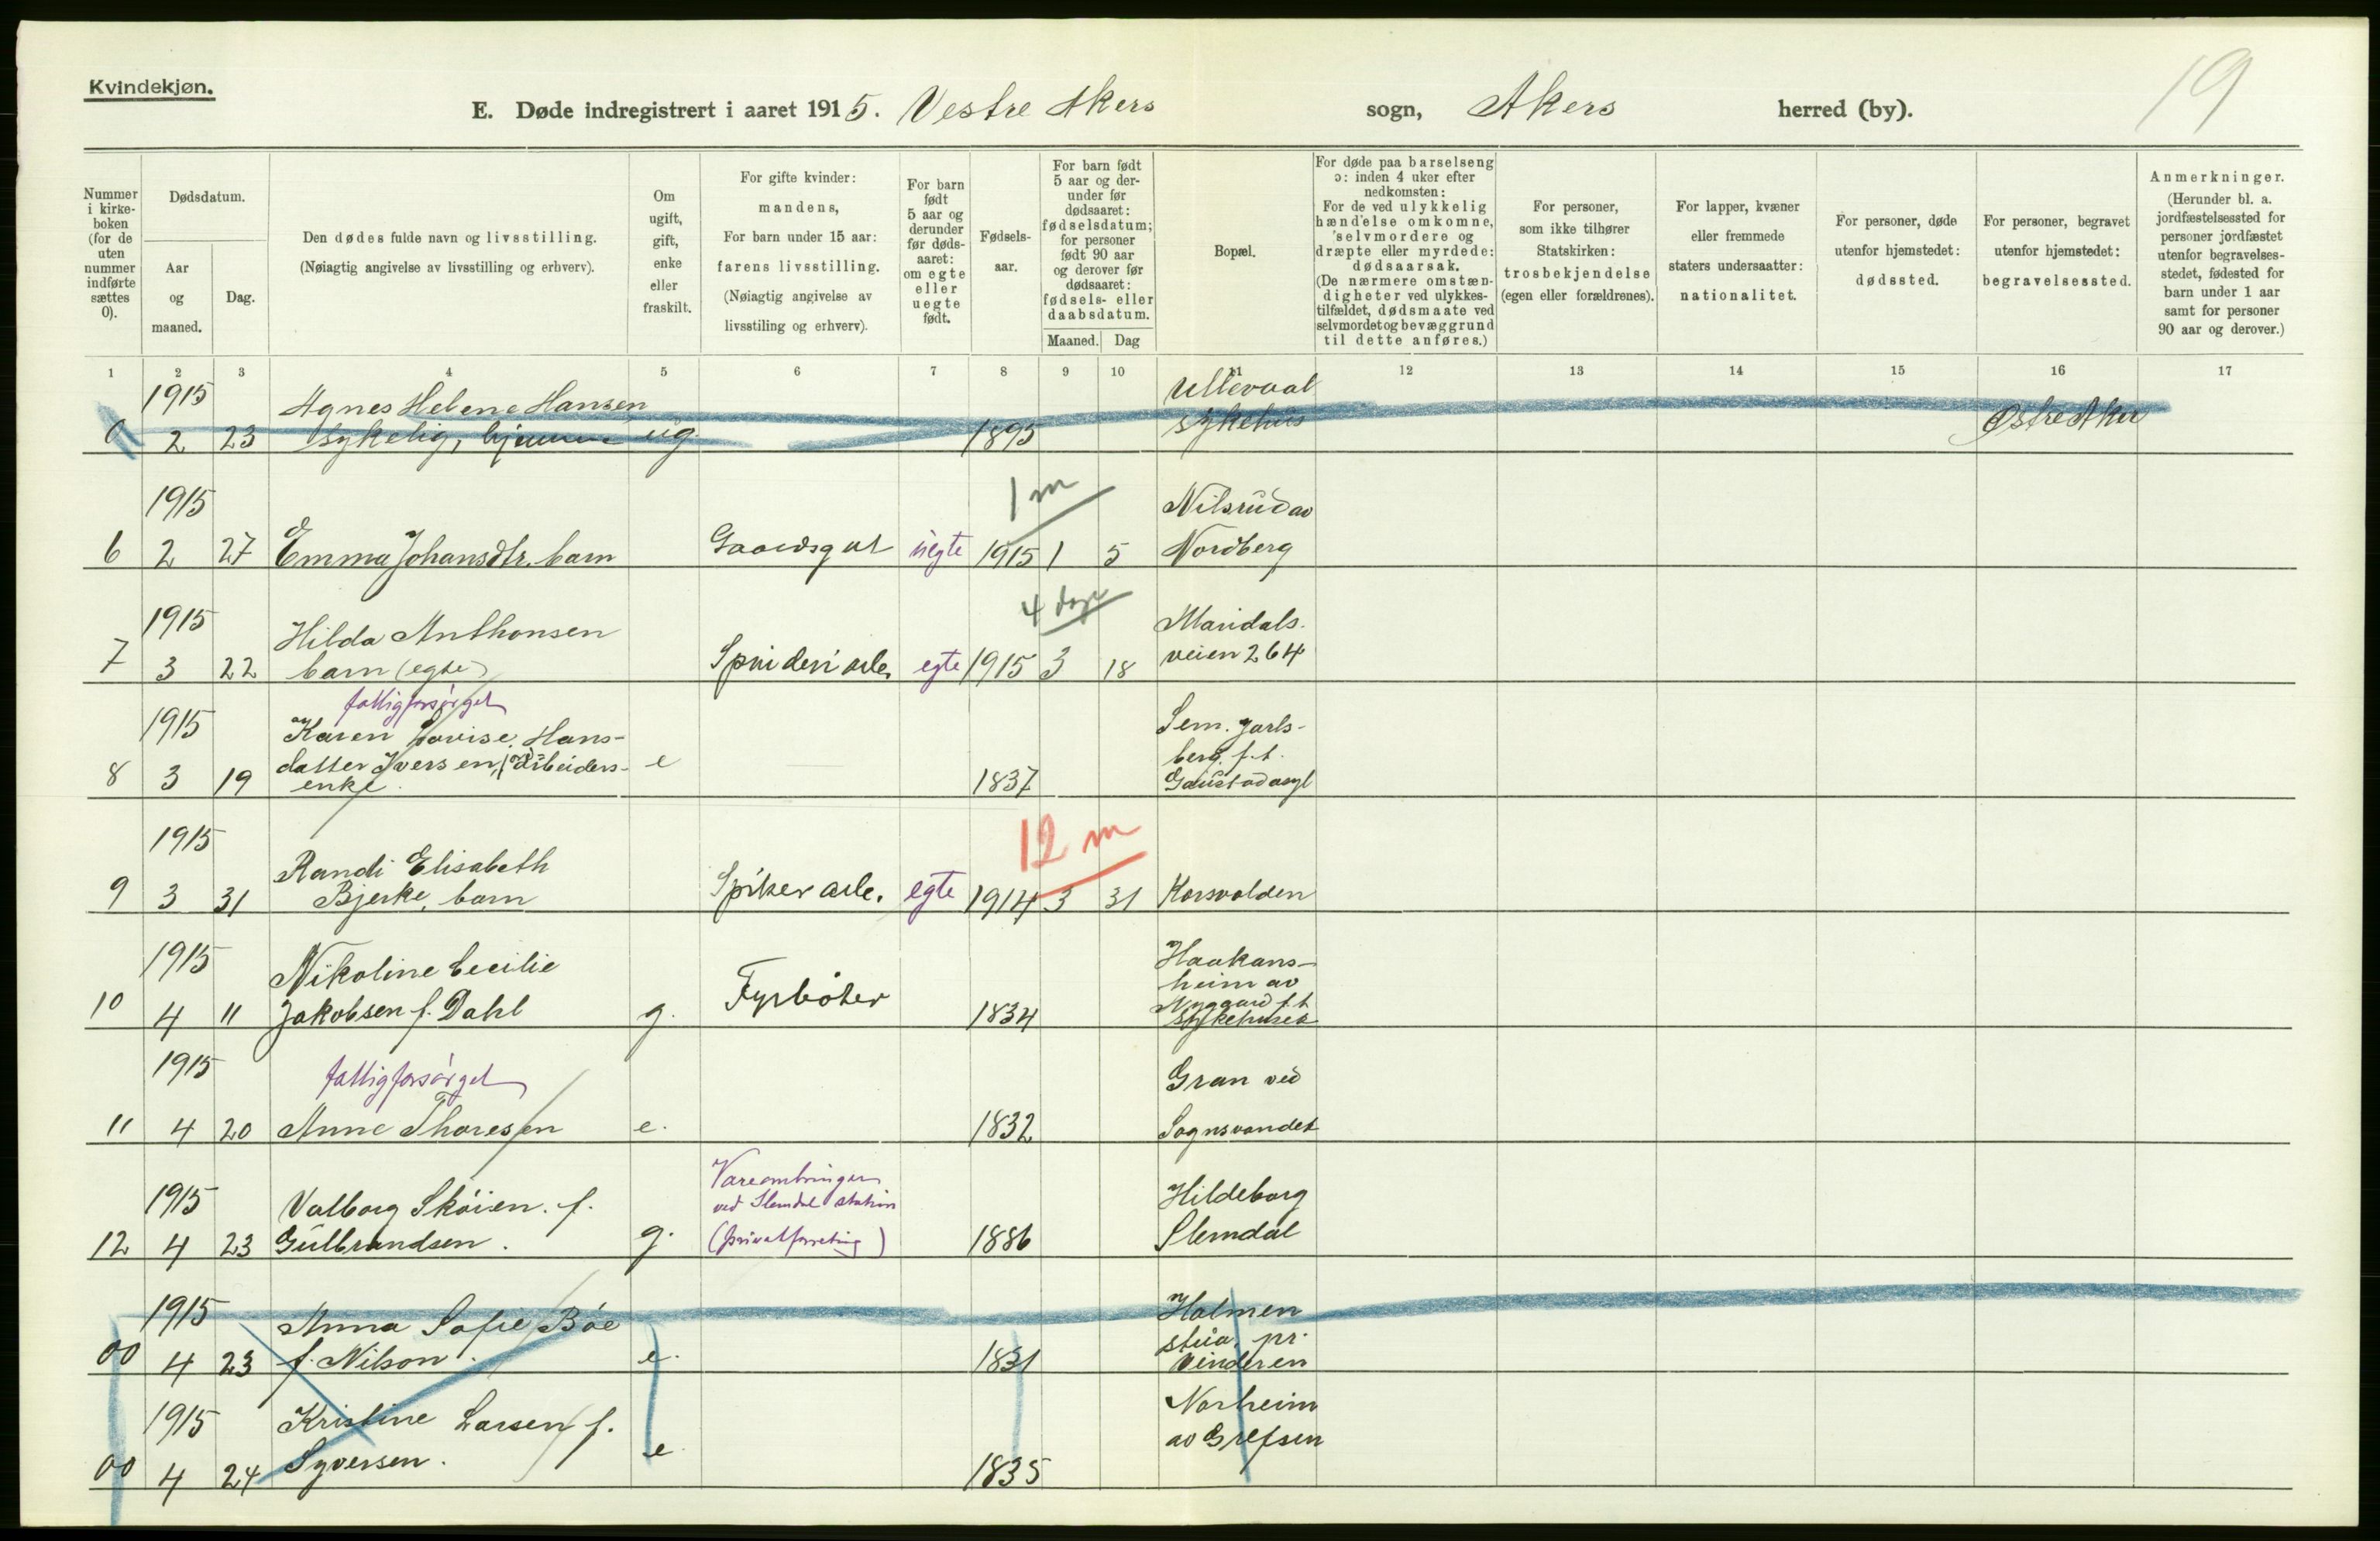 Kvindekjøn.
19
E. Døde indregistrert i aaret 1915. Vestre Akers sogn, Akers herred (by).
Nummer i kirkeboken (for de uten nummer indførte sættes 0).
Dødsdatum.
Aar og maaned.
Dag.
Den dødes fulde navn og livsstilling.
(Nøiagtig angivelse av livsstilling og erhverv).
Om ugift, gift, enke eller fraskilt.
For gifte kvinder: mandens,
For barn under 15 aar: farens livsstilling.
(Nøiagtig angivelse av livsstiling og erhverv).
For barn født 5 aar og derunder før dødsaaret: om egte eller uegte født.
Fødselsaar.
For barn født 5 aar og derunder før dødsaaret: fødselsdatum; for personer født 90 aar og derover før dødsaaret: fødsels- eller daabsdatum.
Maaned. Dag
Bopæl.
For døde paa barselseng ɔ: inden 4 uker efter nedkomsten:
For de ved ulykkelig hændelse omkomne, selvmordere og dræpte eller myrdede: dødsaarsak.
(De nærmere omstændigheter ved ulykkestilfældet, dødsmaate ved selvmordet og bevæggrund til dette anføres.)
For personer, som ikke tilhører Statskirken: trosbekjendelse (egen eller forældrenes).
For lapper, kvæner eller fremmede staters undersaatter: nationalitet.
For personer, døde utenfor hjemstedet: dødssted.
For personer, begravet utenfor hjemstedet: begravelsessted.
Anmerkninger.
(Herunder bl. a. jordfæstelsessted for personer jordfæstet utenfor begravelsesstedet, fødested for barn under 1 aar samt for personer 90 aar og derover.)
1 2 3 4 5 6 7 8 9 10 11 12 13 14 15 16 17
1915 Agnes Helene Hansen Ullevaal
0 2 23 sykelig, hjemme ug. 1895 sykehus Østre Aker
1915 1 m Nilsrud av
6 2 27 Emma Johansdtr. barn Gaardsgut uegte 1915 1 5 Nordberg
1915 Hilda Anthonsen 4 dage Maridals-
7 3 22 barn (egte) Spinderiarb. egte 1915 3 18 veien 264
fattigforsørget
1915 Karen Lovise Hans- Sem. Jarls-
datter Iversen, arbeiders- e berg f.t.
8 3 19 enke. 1837 Gaustad asyl
1915 12 m
Randi Elisabeth
9 3 31 Bjerke, barn Spikerarb. egte 1914 3 31 Korsvolden
1915 Nikoline Cecilie Haakans-
heim av
Nygaard f.t.
10 4 11 Jakobsen f. Dahl g. Fyrbøter 1834 sykehuset
1915 fattigforsørget Gran ved
11 4 20 Anne Thoresen e. 1832 Sognsvandet
Vareombringer
1915 Valborg Skøien. f. ved Slemdal station Hildeborg
12 4 23 Gulbrandsen. g. (privatforretning) 1886 Slemdal
1915 Anna Sofie Bøe Holmen
stua, pr.
00 4 23 f. Nilson. e. 1831 Vinderen
1915 Kristine Larsen f. Norheim
av Grefsen
00 4 24 Syversen. e 1835